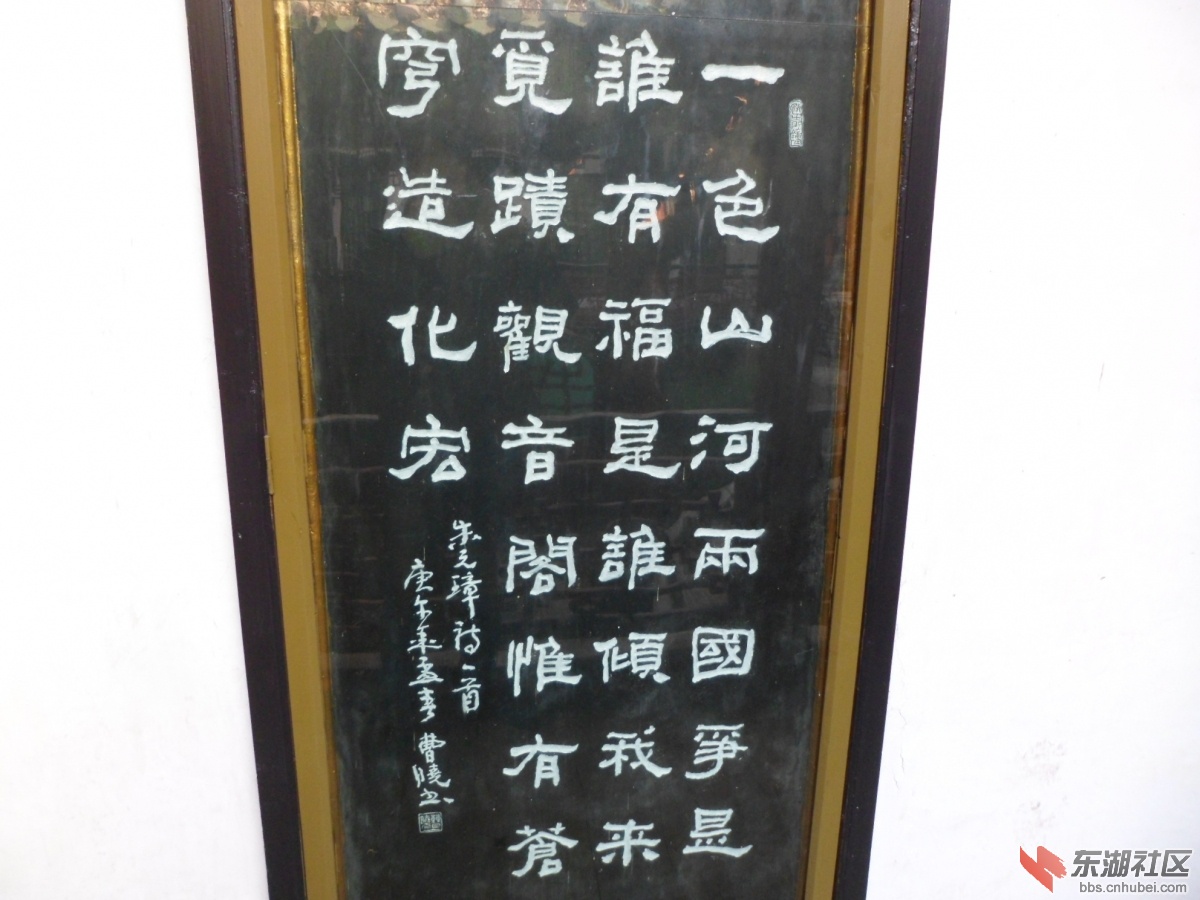 一色山河兩國爭昰
誰有福是誰傾我来
覓蹟觀音閣惟有蒼
穹造化宏
朱元璋詩一首
庚午年孟春曹曉书
东湖社区
bbs.cnhubei.com